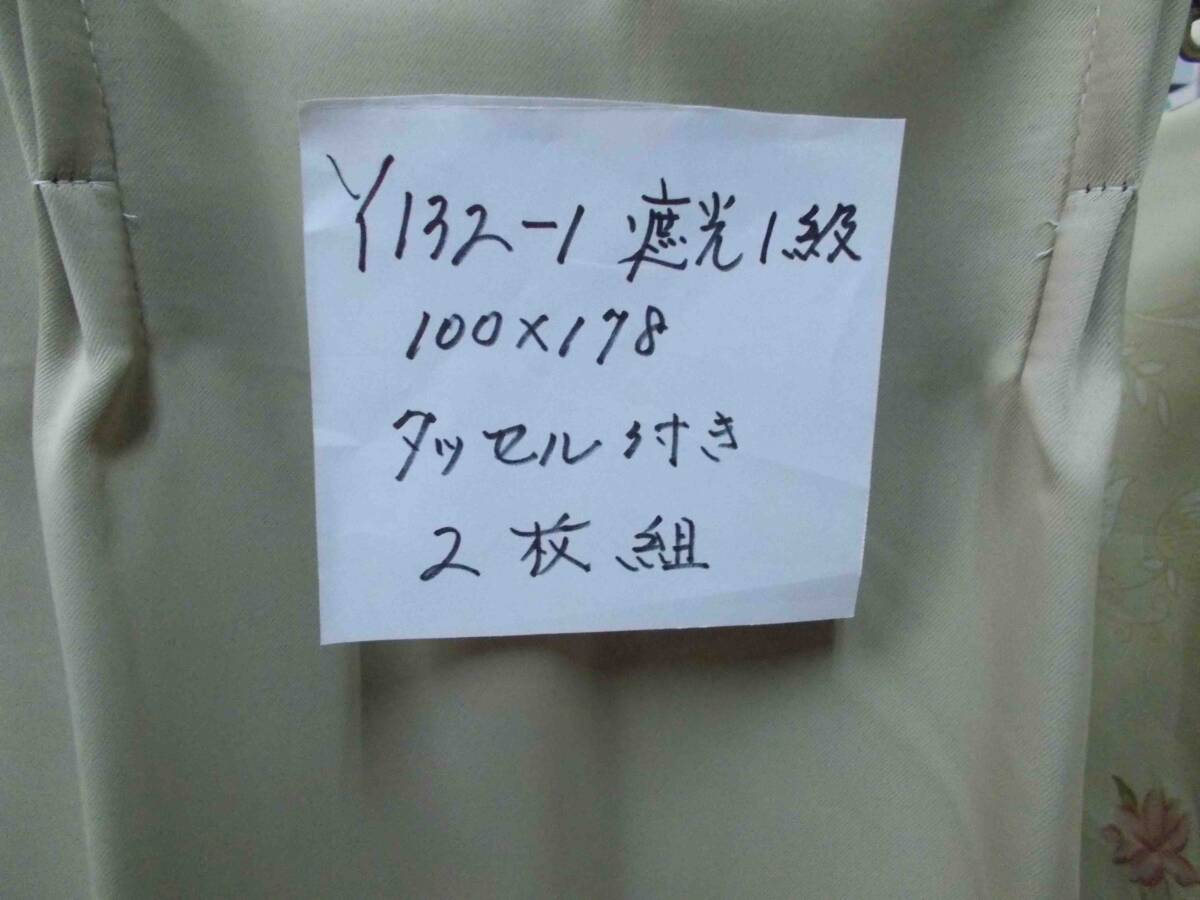 Y132-1 遮光1級
100×178
タッセル付き
2枚組